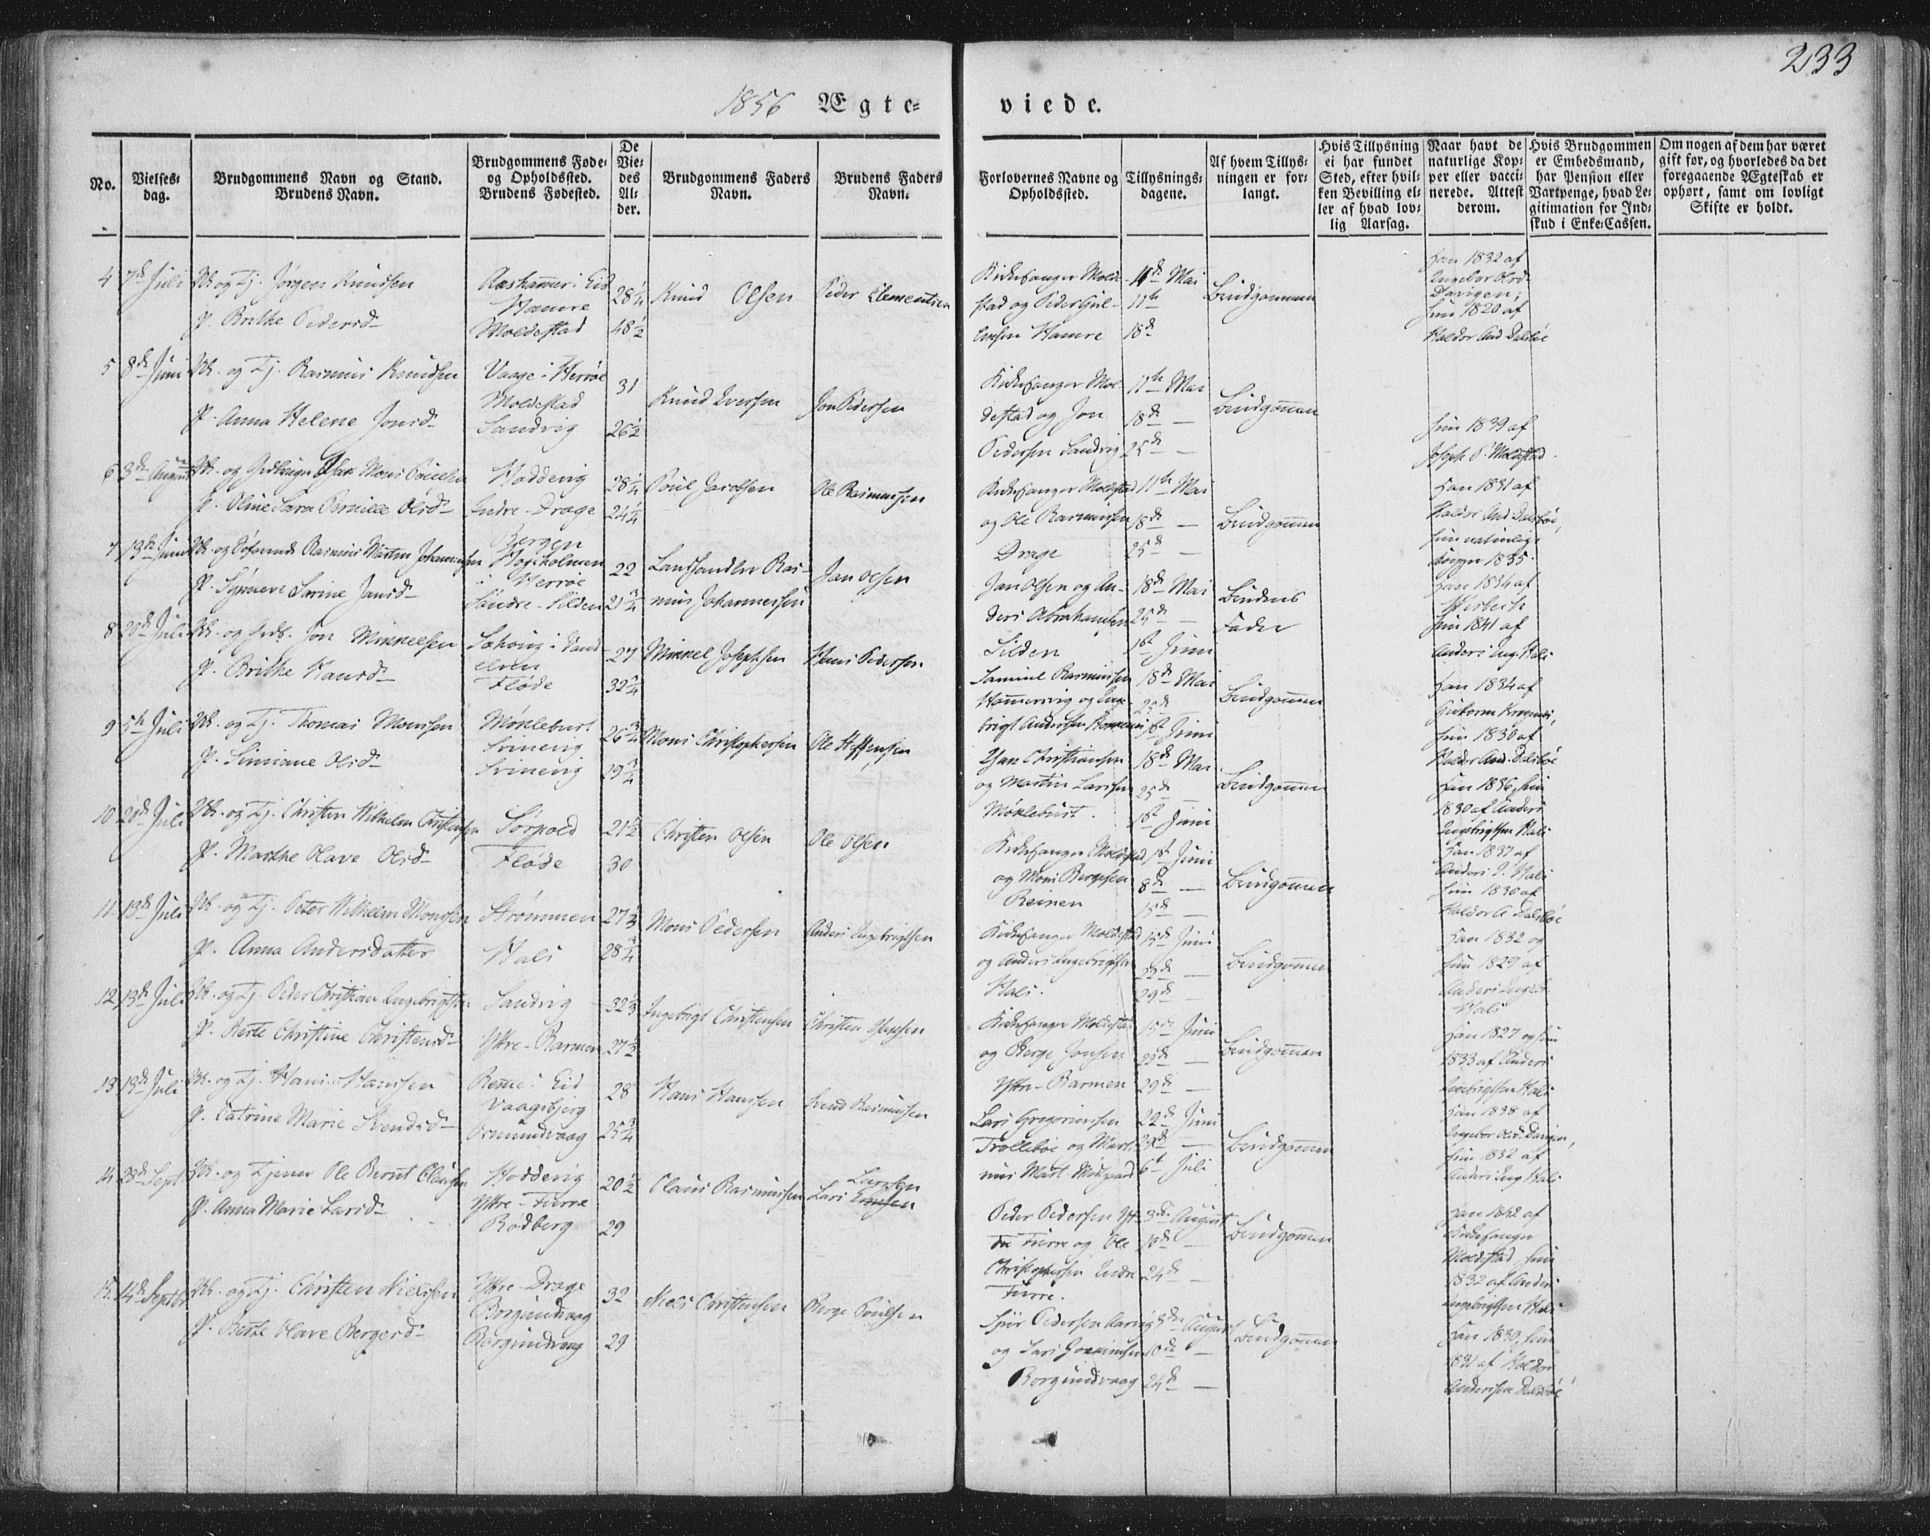 233
1856 Ægte- viede.
No.
Vielses-
dag.
Brudgommens Navn og Stand.
Brudens Navn.
Brudgommens Føde-
og Opholdssted.
Brudens Fødested.
De
Vie-
des
Al-
der.
Brudgommens Faders
Navn.
Brudens Faders
Navn.
Forlovernes Navne og
Opholdssted.
Tillysnings-
dagene.
Af hvem Tillys-
ningen er for-
langt.
Hvis Tillysning
ei har fundet
Sted, efter hvil-
ken Bevilling el-
ler af hvad lov-
lig Aarsag.
Naar havt de
naturlige Kop-
per eller vacci-
nerede. Attest
derom.
Hvis Brudgommen
er Embedsmand,
har Pension eller
Vartpenge, hvad Le-
gitimation for Ind-
skud i Enke-Cassen.
Om nogen af dem har været
gift før, og hvorledes da det
foregaaende Ægteskab er
ophørt, samt om lovligt
Skifte er holdt.
4 7de Juli
Uk. og Tj. Jørgen Knudsen
P. Brithe Pedersd
Hamre
Moldestad
28 1/4
48 1/2
Knud Olsen
Peder Clementsen
Kirkesanger Molde-
stad og Peder
Hamre
4de Mai
11te
18de
Brudgommen
Han 1832 af
Ingebor Ols-
Davigen;
hun 1820 af
Haldor And Dalsbøe
5 8de Juni
Uk. og Tj. Rasmus Knudsen
P. Anna Helene Jonsd
Vaage i Herrøe
Moldestad
Sandvig
31
26 1/2
Knud Iversen
Jon Pedersen
Kirkesanger Mol-
destad og Jon
Pedersen Sandvig
11te Mai
18de —
25de —
Brudgommen
hun 1839 af
Joseph P. Moldestad.
6 3de August
Uk. og Mons Poulsen
P. Oline Sara Pernille Olsd
Hoddevig
Indre-Drage
28 1/4
24 1/4
Poul Jacobsen
Ole Rasmussen
Kirkesanger Moldestad
og Ole Rasmussen
Drage
11te Mai
18de —
25de —
Brudgommen
Han 1831 af
Haldor And Dalsbøe,
hun naturlige
Kopper 1835.
7 13de Juni
Uk. og Rasmus Martin Johannessen
P. Synneve Sarine Jansd
Bergen
Hogsholmen
i Herrøe
Søndre-Silden
22
21 3/4
Landhandler Ras-
mus Johannessen
Jan Olsen
Jan Olsen og An-
ders Abrahamsen
Silden
18de Mai
25de —
1ste Juni
Brudens
Fader
Han 1834 af
hun 1841 af
Anders Ing. Hals
8 20de Juli
Uk. og Jon Mikkelsen
P. Brithe Hansd
Fløde
27
32 3/4
Mikkel Josephsen
Hans Pedersen
Samuel Rasmussen
Hammersvig og Inge-
brigt Andersen
18de Mai
25de
1ste Juni
Brudgommen
Han 1834 af
hun 1830 af
Haldor And. Dalsbøe
9 5te Juli
Uk. og Tj. Thomas Monssen
P. Simiane Olsd
Møklebust
Svinevig
Svinevig
26 3/4
29 3/4
Mons Christophersen
Ole Steffensen
Christiansen
og Martin Larssen
Møklebust.
18de Mai
25de
1ste Juni
Brudgommen
Han 1836, hun
1830 af Anders
Ingebrigtsen Hals
10 20de Juli
Uk. og Tj. Christen Wilhelm Christensen
P. Marthe Olave Olsd
Sørpold
Fløde
21 1/2
30
Christen Olsen
Ole Olsen
Kirkesanger Moldestad
og Mons
Reinen
1ste Juni
8de —
15de —
Brudgommen
Han 1837 af
Anders I. Hals
hun 1830 af
Haldor A Dalsbøe
11 13de Juli
Uk. og Tj. Peter Wilhelm Monssen
P. Anna Andersdatter
Strømmen
Hals
27 1/2
28 3/4
Mons Pedersen
Anders Ingebrigtsen
Kirkesanger Moldestad
og Anders Ingebrigtsen
Hals.
15de Juni
22de —
29de —
Brudgommen
Han 1832 og
hun 1829 af
Hals
12 13de Juli
Uk. og Tj. Peder Christian Ingebrigtsen
P. Berte Christine Christensd
Sandvig
Yttre-Barmen
27 1/2
Ingebrigt Christensen
Kirkesanger Moldestad
og Berge Jonsen
Yttre-Barmen
15de Juni
22de —
29de —
Brudgommen
Han 1827 og hun
1833 af Anders
Ingebrigtsen Hals
13 13de Juli
Uk. og Tj. Hans Hanssen
P. Catrine Marie Svendsd
Eid
Vaagsbjerg
Osmundvaag
28
25 3/4
Hans Hanssen
Svend Rasmussen
Lars Gregoriussen
Trolleboe og Mart-
22de Juni
29de —
6te Juli
Brudgommen
Han 1838 af
hun 1832 af
Anders Ing Hals
14 28de Sept
Uk. og Tjener Ole Bernt Olaussen
P. Anna Marie Larsd
Hoddevig
Yttre-Furre
Rødberg
20 1/2
29
Olaus Rasmussen
Larssen
Lars
Peder Pedersen Yt-
tre Furre og Ole
Christophersen Indre
Furre.
3de August
10de —
24de —
Brudgommen
Han 1842 af
Kirkesanger
Moldestad, hun
1832 af Anders
Ingebrigtsen Hals
15. 14de Septbr
Uk. og Tj. Christen Nielssen
P. Berte Olave Bergesd
Yttre-Drage
Borgundvaag
Borgundvaag
32
29
Niels Christensen
Berge Poulsen
Pedersen
og Lars
Borgundvaag
3de August
10de —
24de —
Brudgommen
Han 1830, hun
1831 af Haldor
Anderssen Dalsbøe